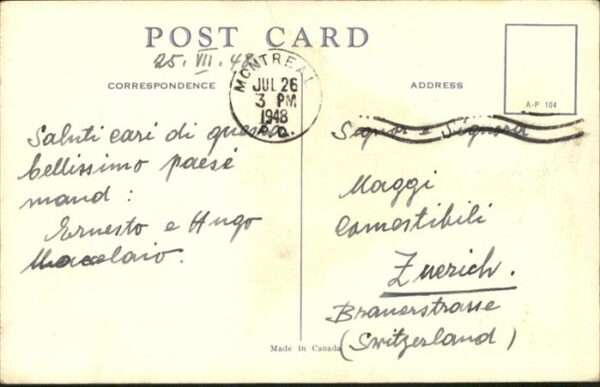 POST CARD
25. VII. 48
MONTREAL
JUL 26
3 PM
1948
P.Q.
CORRESPONDENCE
ADDRESS
A-P 104
Saluti cari di questa
bellissimo paese
mand :
Ernesto e Hugo
Signor e Signora
Maggi
Comestibili
Zuerich.
Brauerstrasse
(Switzerland)
Made in Canada